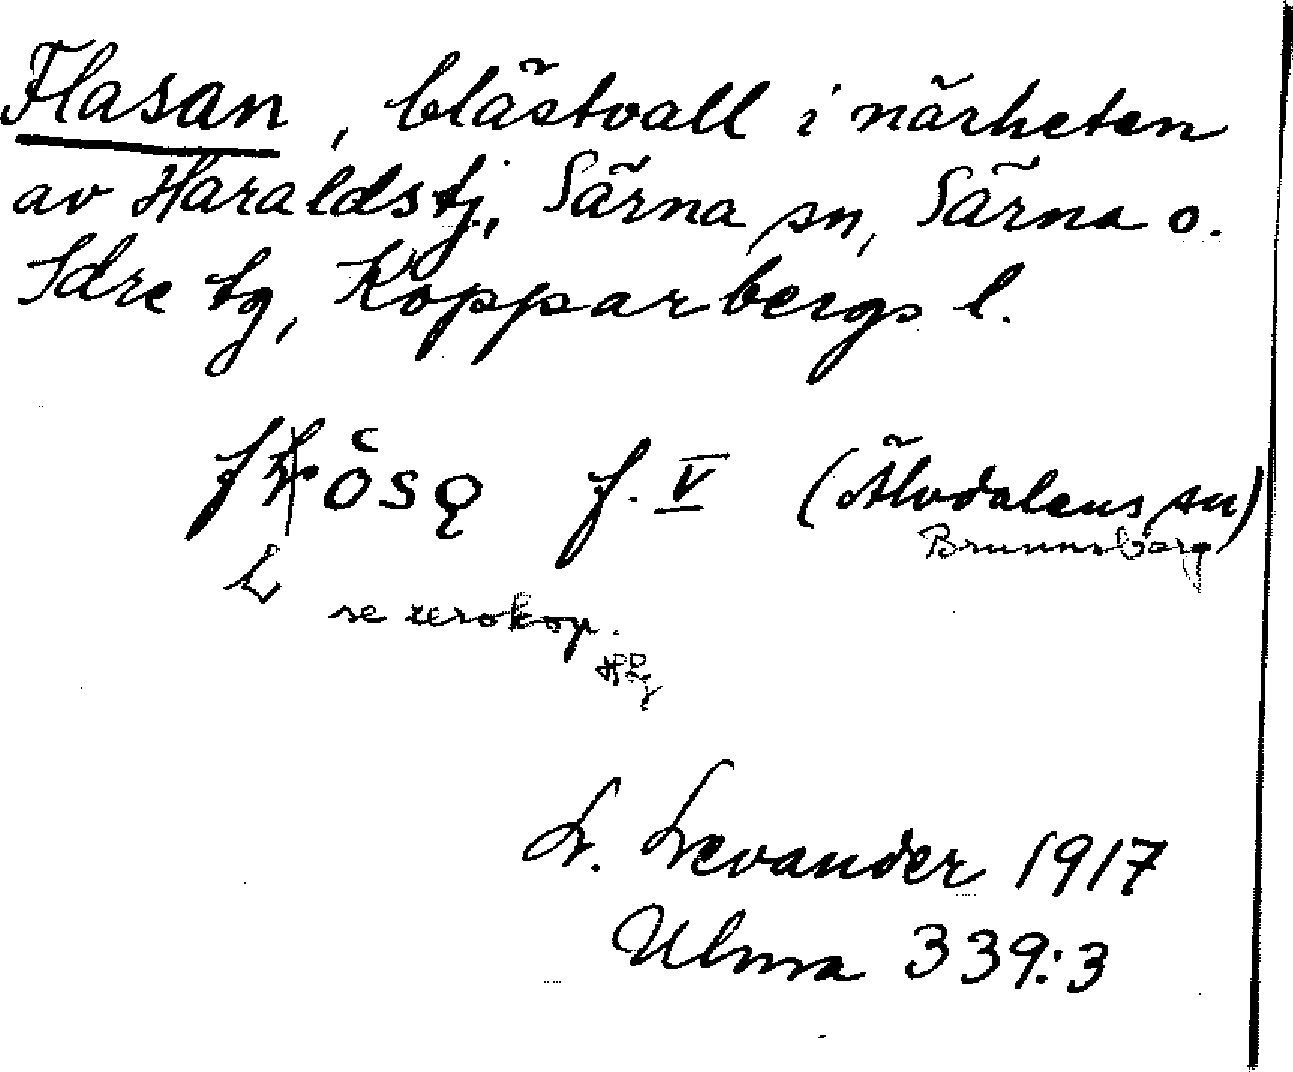 Flasan, blästvall i närheten
av Haraldstj., Särna sn, Särna o.
Idre tg, Kopparbergs l.
f. V (Älvdalens sn)
Brunnsberg
L se xerokop.
L. Levander 1917
Ulma 339:3